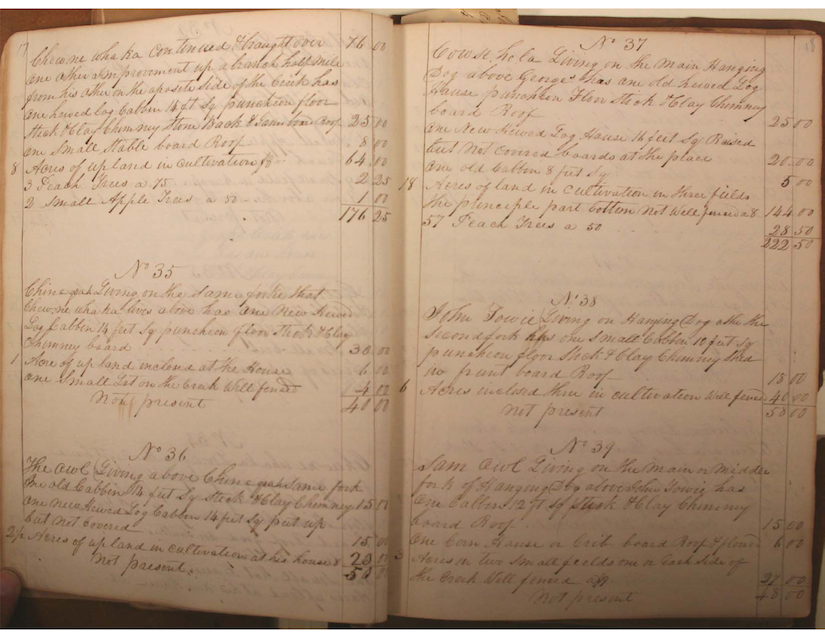 17
Chewne wha ka Continued & braught over 76 00
one other Improvement up a branch half mile
from his other on the upsite side of the Creek has
one hewed log Cabben 14 ft Sq puncheon floor
Stick & Clay Chimny Stone Back & board Roof 25 00
one Small Stable board Roof 8 00
8 Acres of up land in cultivation 64 00
3 Peach Trees a 75 2 25
2 Small Apple Trees a 50 1 00
176 25
No 35
Living on the Same forke that
Chewne wha ka lives above has one New Hewed
Log Cabben 14 feet Sq puncheon floor Stick & Clay
Chimney board 30 00
1 Acre of up land inclosed at the House 6 00
one Small Lot on the Creek Well fenced 4 00
Not present 40 00
No 36
The Owl Living above Same fork
One old Cabben 14 feet Sq Stick & Clay Chimney 15 00
one New Hewed Log Cabben 14 feet Sq put up
but Not Covered 15 00
2½ Acres of up land in cultivation at his house 8 20 00
Not present 50 00
18
No 37
Cowse ho la Living on the Main Hanging
Dog above George's has one old hewed Log
House puncheon Floor Stick & Clay Chimney
board Roof 25 00
one New Hewed Log House 14 feet Sq Raised
but Not Covered boards at the place 20 00
one old Cabben 8 feet Sq 5 00
18 Acres of land in Cultivation in three fields
the principle part bottom Not Well fenced a 8 144 00
57 Peach Trees a 50 28 50
222 50
No 38
John Towie Living on Hanging Dog other the
Second fork has one Small Cabben 10 feet Sq
puncheon floor Stick & Clay Chimney Shed
in front board Roof 18 00
6 Acres inclosed in cultivation Well fenced 40 00
Not present 58 00
No 39
Sam Owl Living on the Main or Middle
fork of Hanging Dog above John Towie has
One Cabben 12 ft Sq Stick & Clay Chimney
board Roof 15 00
One Corn House or Crib board Roof & floor 6 00
3 Acres in two Small feelds one on Each Side of
the Creek Well fenced a 9 27 00
Not present 48 00